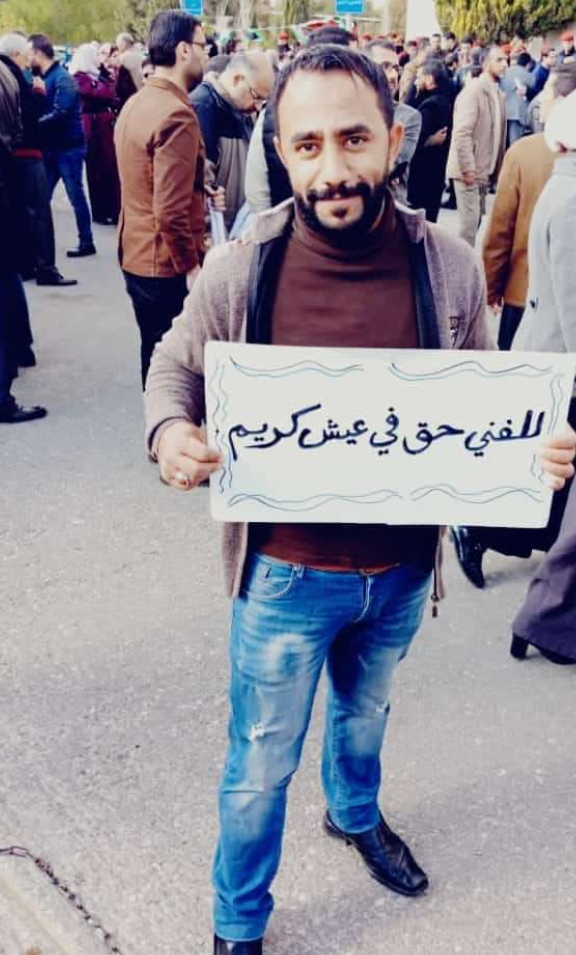 للفني حق في عيش كريم